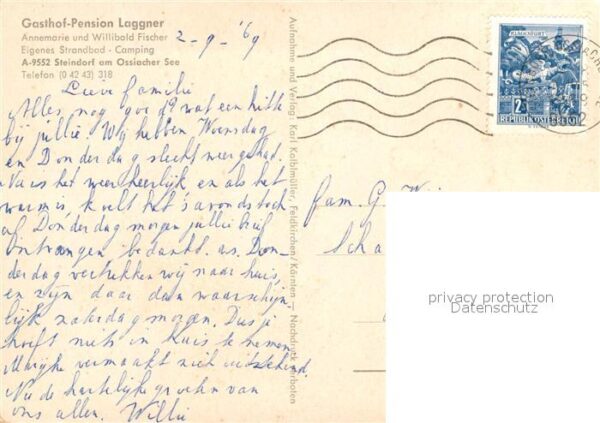 Gasthof-Pension Laggner
Annemarie und Willibald Fischer
Eigenes Strandbad - Camping
A-9552 Steindorf am Ossiacher See
Telefon (0 42 43) 318
2-9-'69
Lieve familie
Alles nog goed? wat een hitte
bij jullie. Wij hebben Woensdag
en Donderdag slecht weer gehad.
Nu is het weer heerlijk en als het
warm is, koelt het 's avonds toch
af. Donderdag morgen jullie brief
ontvangen bedankt. a.s. Don-
derdag vertrekken wij naar huis,
en zijn daar dan waarschijn-
lijk zaterdag morgen. Dus je
hoeft niet in huis te nemen
Marijke vermaakt zich uitstekend
Nu de hartelijke groeten van
ons allen. Willie
Aufnahme und Verlag: Karl Kolbmüller, Feldkirchen/Kärnten - Nachdruck verboten
KLAGENFURT
2 S
REPUBLIK ÖSTERREICH
fam. G. W
Scha
privacy protection
Datenschutz